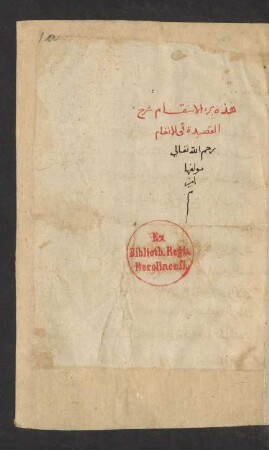 1a
هذه برء الاسقام شرح
القصيدة في الانغام
رحم الله تعالى
مولفها
امين
م
Ex
Biblioth. Regia
Berolinensi.